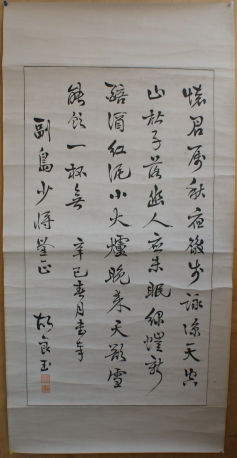 懷君屬秋夜散步詠涼天空
山松子落幽人應未眠綠螘新
醅酒紅泥小火爐晚來天欲雪
能飲一杯無 辛巳春月書奉
副島少將鑒正
良玉